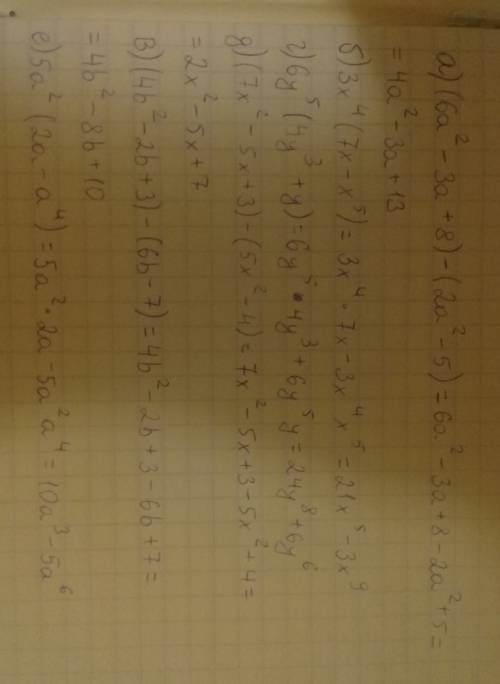 а) (6a² - 3a + 8) - (2a² - 5) = 6a² - 3a + 8 - 2a² + 5 =
= 4a² - 3a + 13
б) 3x⁴ (7x - x⁵) = 3x⁴ · 7x - 3x⁴ x⁵ = 21x⁵ - 3x⁹
г) 6y⁵ (4y³ + y) = 6y⁵ · 4y³ + 6y⁵ y = 24y⁸ + 6y⁶
д) (7x² - 5x + 3) - (5x² - 4) = 7x² - 5x + 3 - 5x² + 4 =
= 2x² - 5x + 7
в) (4b² - 2b + 3) - (6b - 7) = 4b² - 2b + 3 - 6b + 7 =
= 4b² - 8b + 10
е) 5a² (2a - a⁴) = 5a² · 2a - 5a² a⁴ = 10a³ - 5a⁶